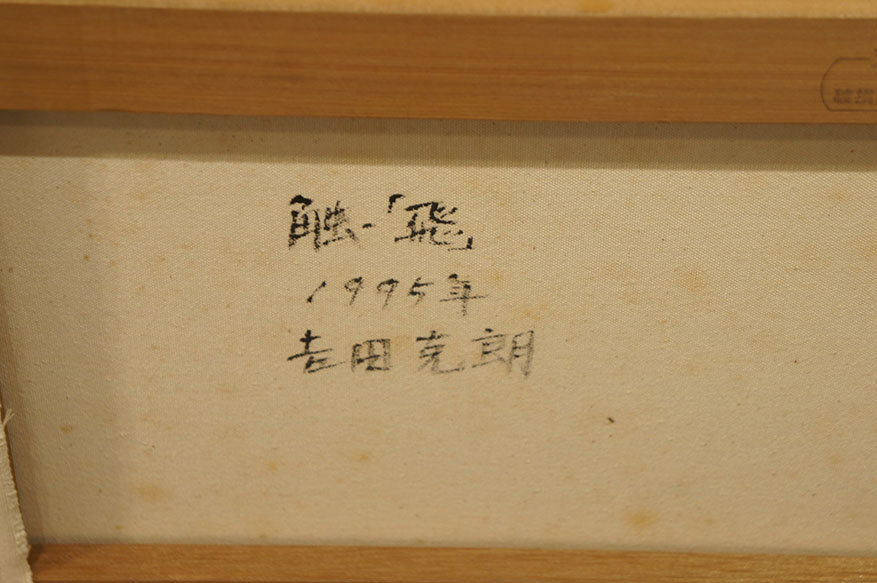 触-「飛」
1995年
吉田克朗